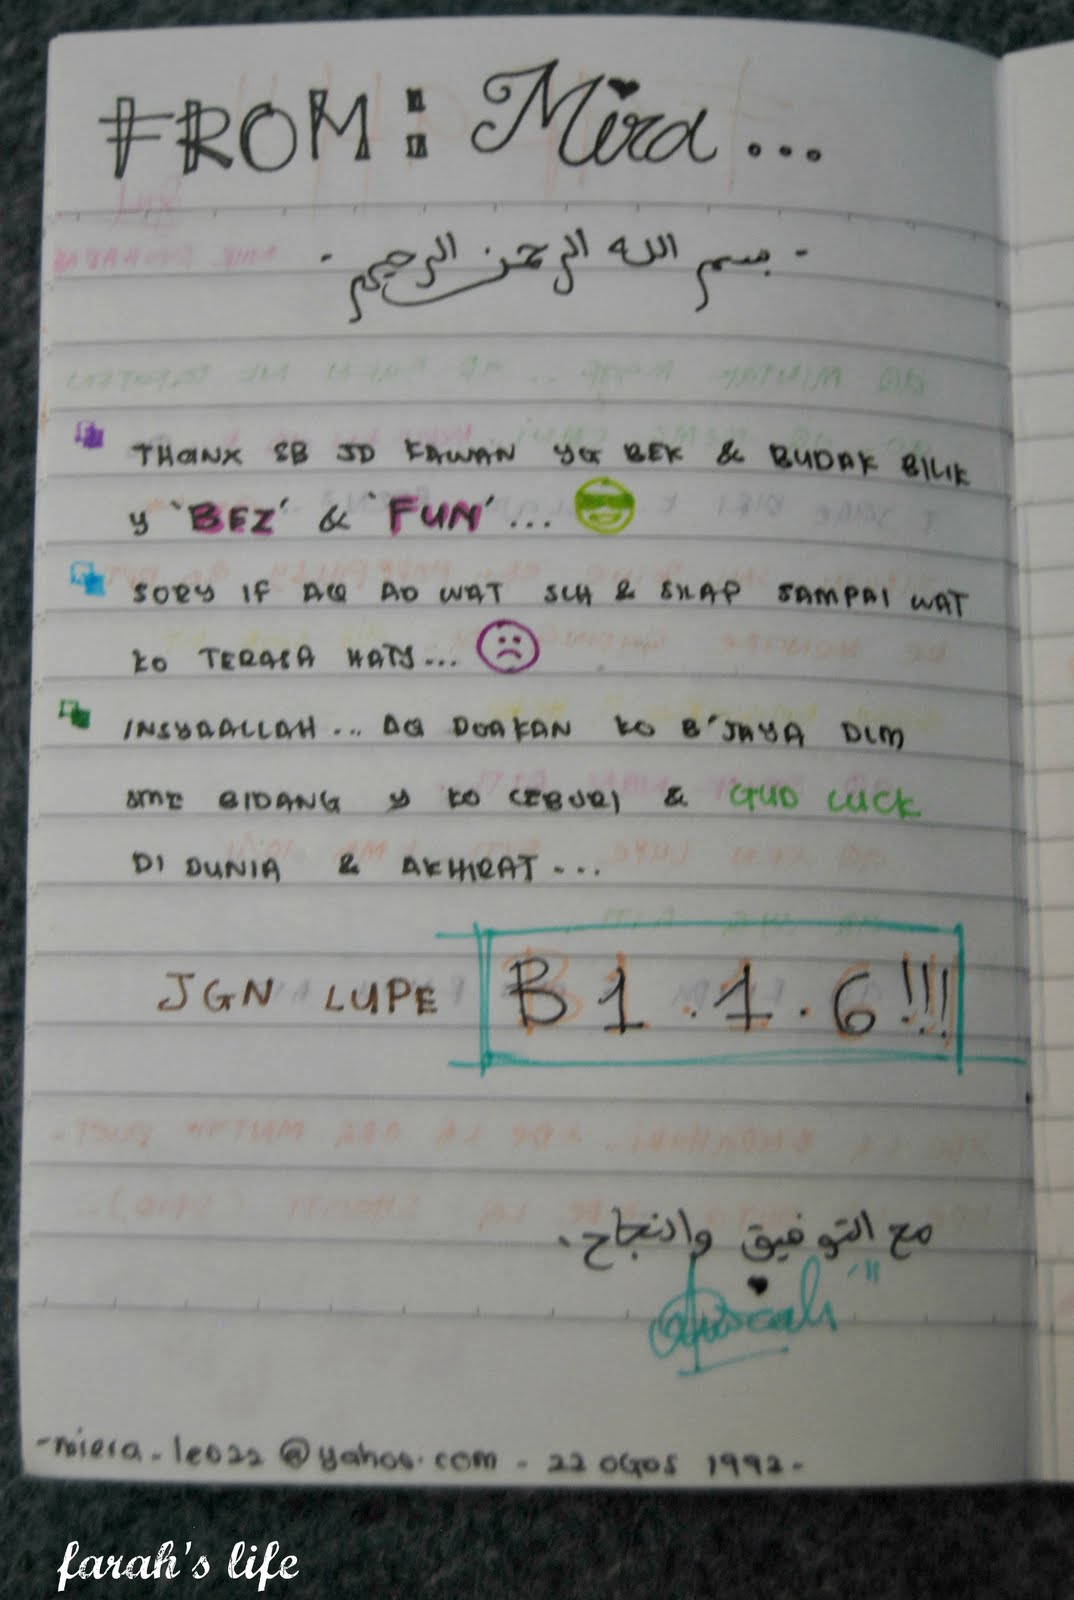 FROM: Mira...
- بسم الله الرحمن الرحيم -
THANX SB JD KAWAN YG BEK & BUDAK BILIK
Y 'BEZ' & 'FUN'...
SORY IF AQ AD WAT SLH & SILAP SAMPAI WAT
KO TERASA HATY...
INSYAALLAH... AQ DOAKAN KO B'JAYA DLM
SME BIDANG Y KO CEBURI & GUD LUCK
DI DUNIA & AKHIRAT...
JGN LUPE B1.1.6!!!
مع التوفيق والنجاح،
-miera_leo22@yahoo.com - 22 OGOS 1992-
farah's life